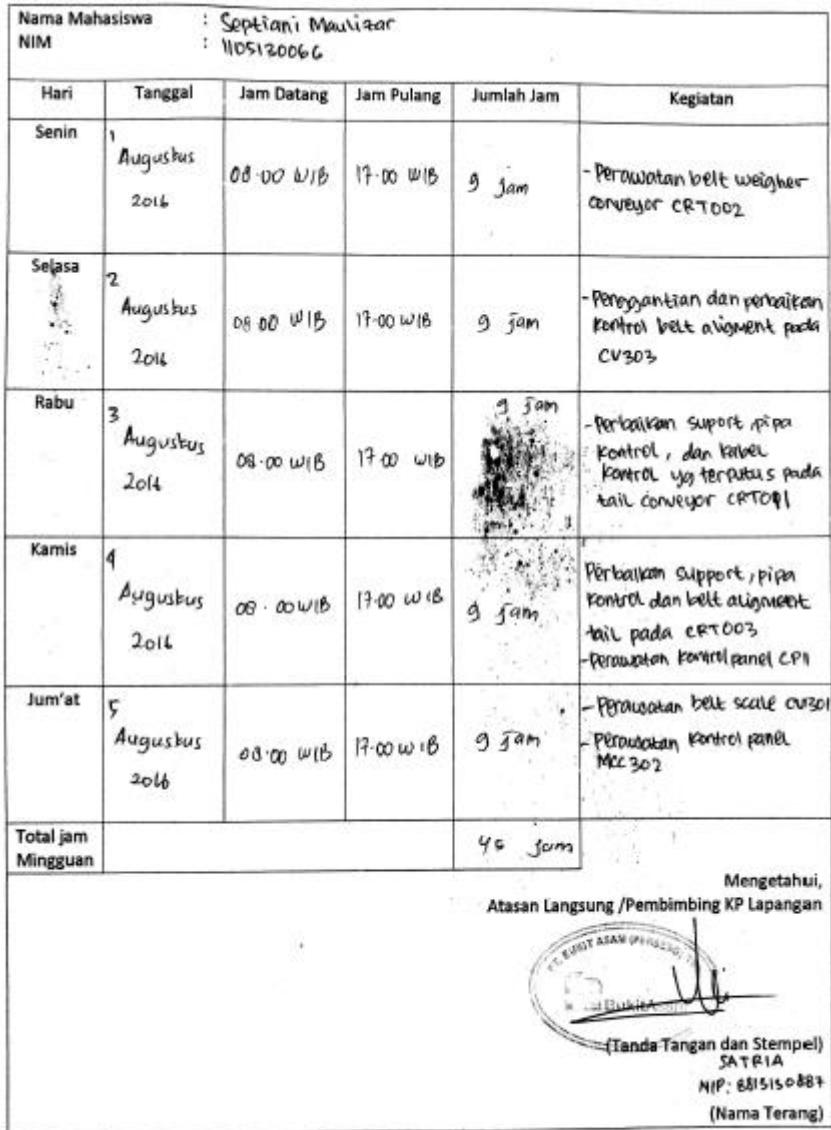 Nama Mahasiswa : Septiani Maulizar
NIM : 1105130066
Hari Tanggal Jam Datang Jam Pulang Jumlah Jam Kegiatan
Senin 1 Augustus 2016 08.00 WIB 17.00 WIB 9 Jam
- Perawatan belt weigher
conveyor CRT002
Selasa 2 Augustus 2016 08 00 WIB 17.00 WIB 9 Jam
- Penggantian dan perbaikan
kontrol belt aligment pada
CV303
Rabu 3 Augustus 2016 08.00 WIB 17 00 WIB 9 Jam
- Perbaikan suport, pipa
kontrol, dan kabel
kontrol yg terputus pada
tail conveyor
Kamis 4 Augustus 2016 08.00 WIB 17.00 WIB 9 Jam
Perbaikan support, pipa
kontrol dan belt aligment
tail pada CRT003
- Perawatan kontrol panel CP11
Jum'at 5 Augustus 2016 08.00 WIB 17.00 WIB 9 Jam
- Perawatan belt scale CV301
- Perawatan kontrol panel
MCC302
Total jam
Mingguan
45 Jam
Mengetahui,
Atasan Langsung /Pembimbing KP Lapangan
PT. BUKIT ASAM (PERSERO)
BukitAsam
(Tanda Tangan dan Stempel)
SATRIA
NIP:
(Nama Terang)